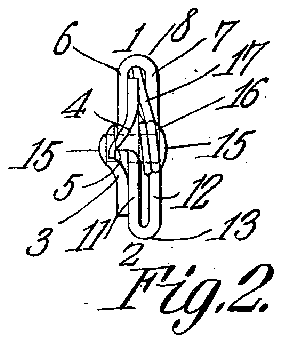 6 1 8 7
17
4 16
15 15
5
3 11 12
2 13
Fig. 2.